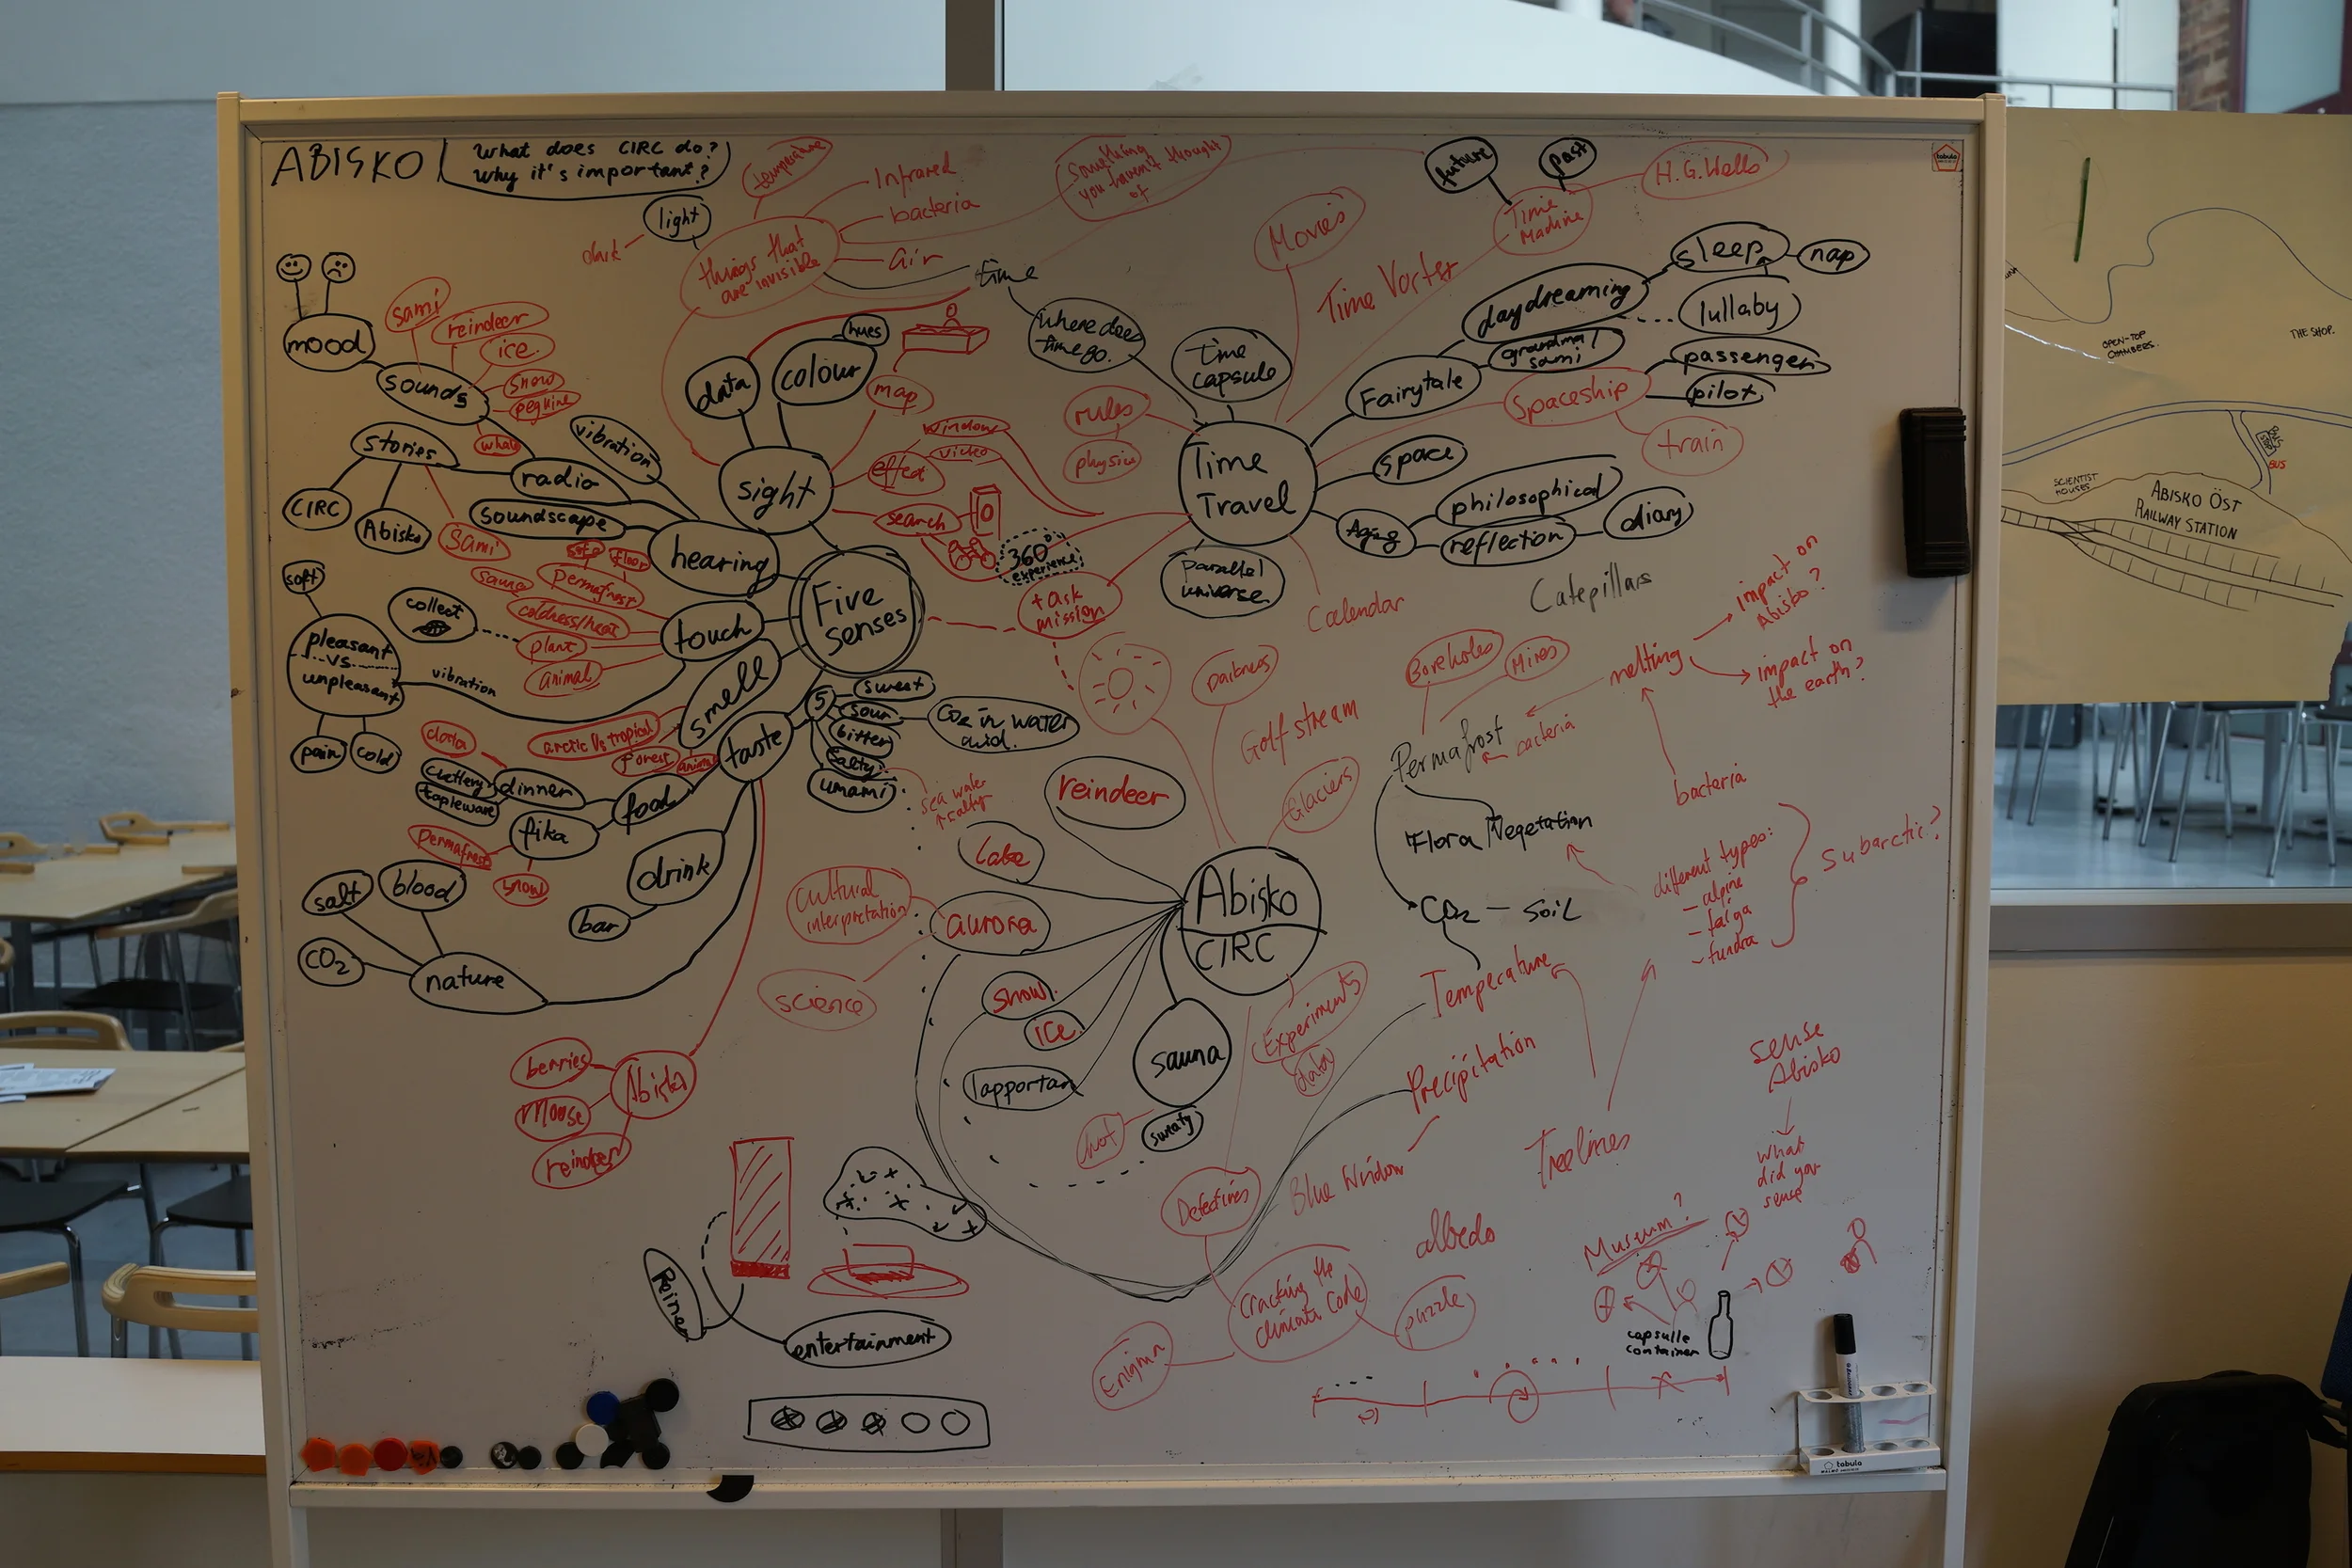 ABISKO
What does CIRC do?
Why it's important?
temperature
light
dark
Infrared
bacteria
air
time
things that
are invisible
something
you haven't thought
of
future
past
Time
Machine
H.G. Wells
Movies
Time Vortex
sleep
nap
daydreaming
lullaby
grandma/
sami
Fairytale
passenger
pilot
Spaceship
train
where does
time go.
time
capsule
rules
physics
Time
Travel
space
philosophical
Aging
reflection
diary
parallel
universe
Calendar
Catepillars
mood
sami
reindeer
ice
snow
sounds
stories
CIRC
Abisko
sami
radio
vibration
soundscape
hearing
data
colour
hues
map
sight
window
video
effect
search
360°
experience
task
mission
Five
senses
soft
pleasant
vs
unpleasant
pain
cold
vibration
collect
sauna
permafrost
coldness/heat
plant
animal
touch
smell
arctic vs tropical
forest
taste
5
sweet
sour
bitter
salty
umami
CO2 in water
acid.
sea water
salty
cutlery
tapleware
dinner
food
fika
permafrost
snow
drink
bar
salt
blood
CO2
nature
berries
Moose
reindeer
Abisko
reindeer
Lake
cultural
interpretation
aurora
science
snow
ICE
lapportan
sauna
hot
sweaty
Abisko
CIRC
Darkness
Golf stream
Glaciers
Experiments
data
Boreholes
Mires
melting
impact on
Abisko?
impact on
the earth?
Permafrost
bacteria
bacteria
Flora/Vegetation
CO2 - SOIL
different types:
- alpine
- taiga
- tundra
Subarctic?
Temperature
Precipitation
Treelines
sense
Abisko
what
did you
sense
Detectives
Blue Window
albedo
Museum?
Cracking the
climate code
puzzle
Enigma
capsulle
container
entertainment
tabula
tabula
OPEN-TOP
CHAMBERS.
THE SHOP.
SCIENTIST
HOUSES
BUS
ABISKO ÖST
RAILWAY STATION